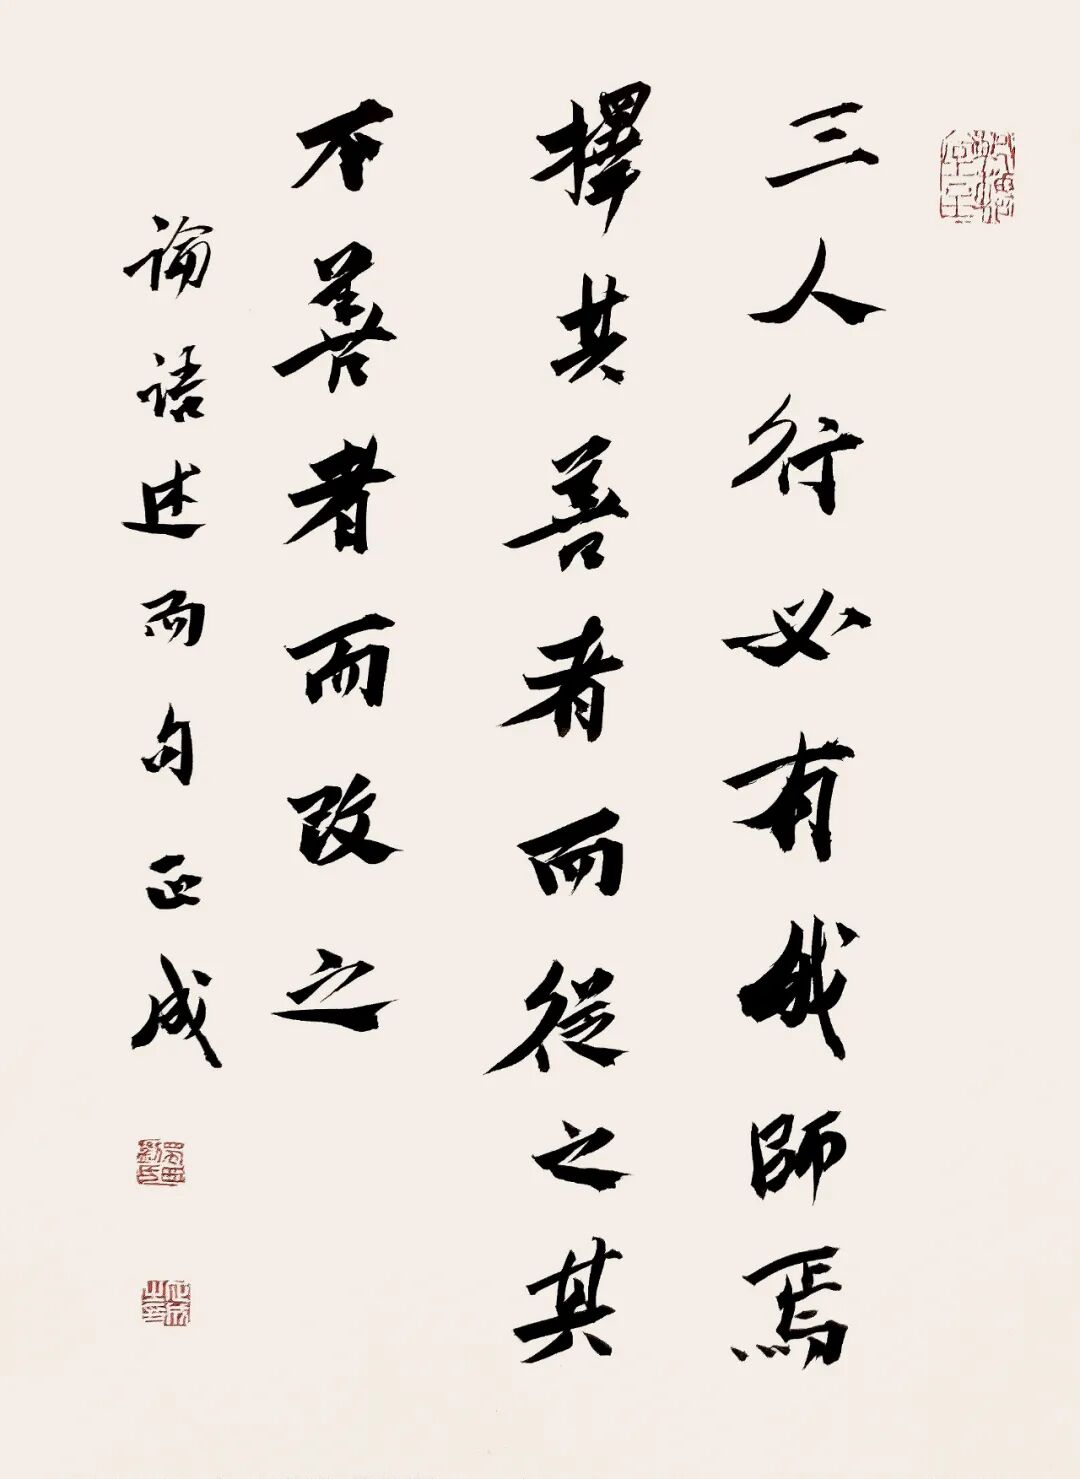 三人行必有我師焉
擇其善者而從之其
不善者而改之
论语述而句正成